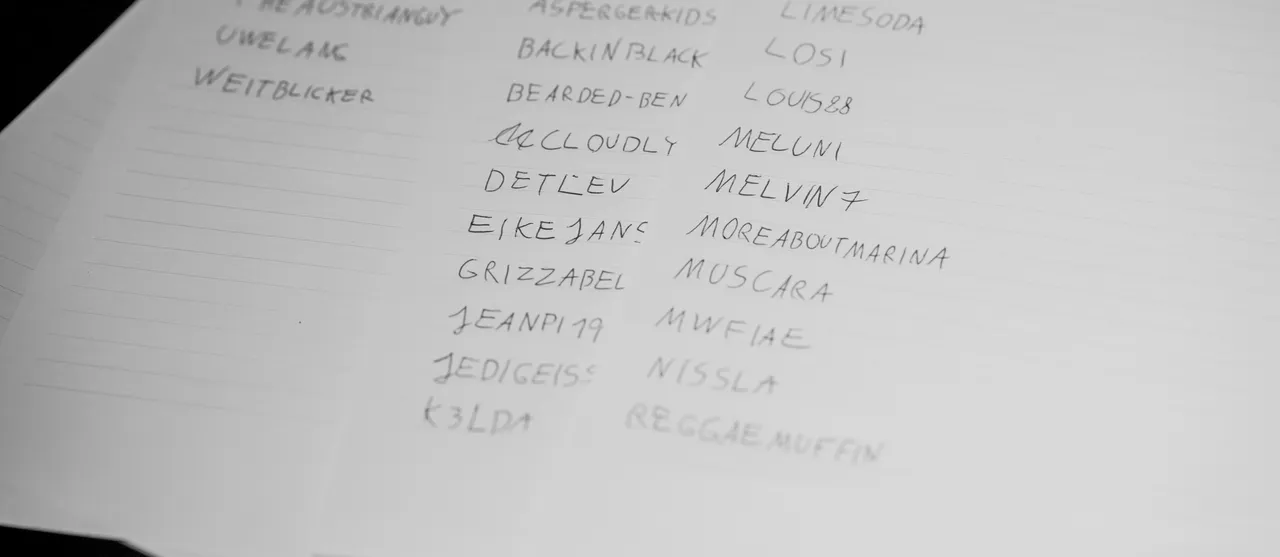 THEAUSTRIANGUY
UWELANG
WEITBLICKER
ASPERGERKIDS
BACKINBLACK
BEARDED-BEN
CCLOUDLY
DETLEV
EIKEJANS
GRIZZABEL
JEANPI19
JEDIGEISS
K3LDA
LIMESODA
LOSI
LOUIS88
MELUNI
MELVIN7
MOREABOUTMARINA
MUSCARA
MWFIAE
NISSLA
REGGAEMUFFIN